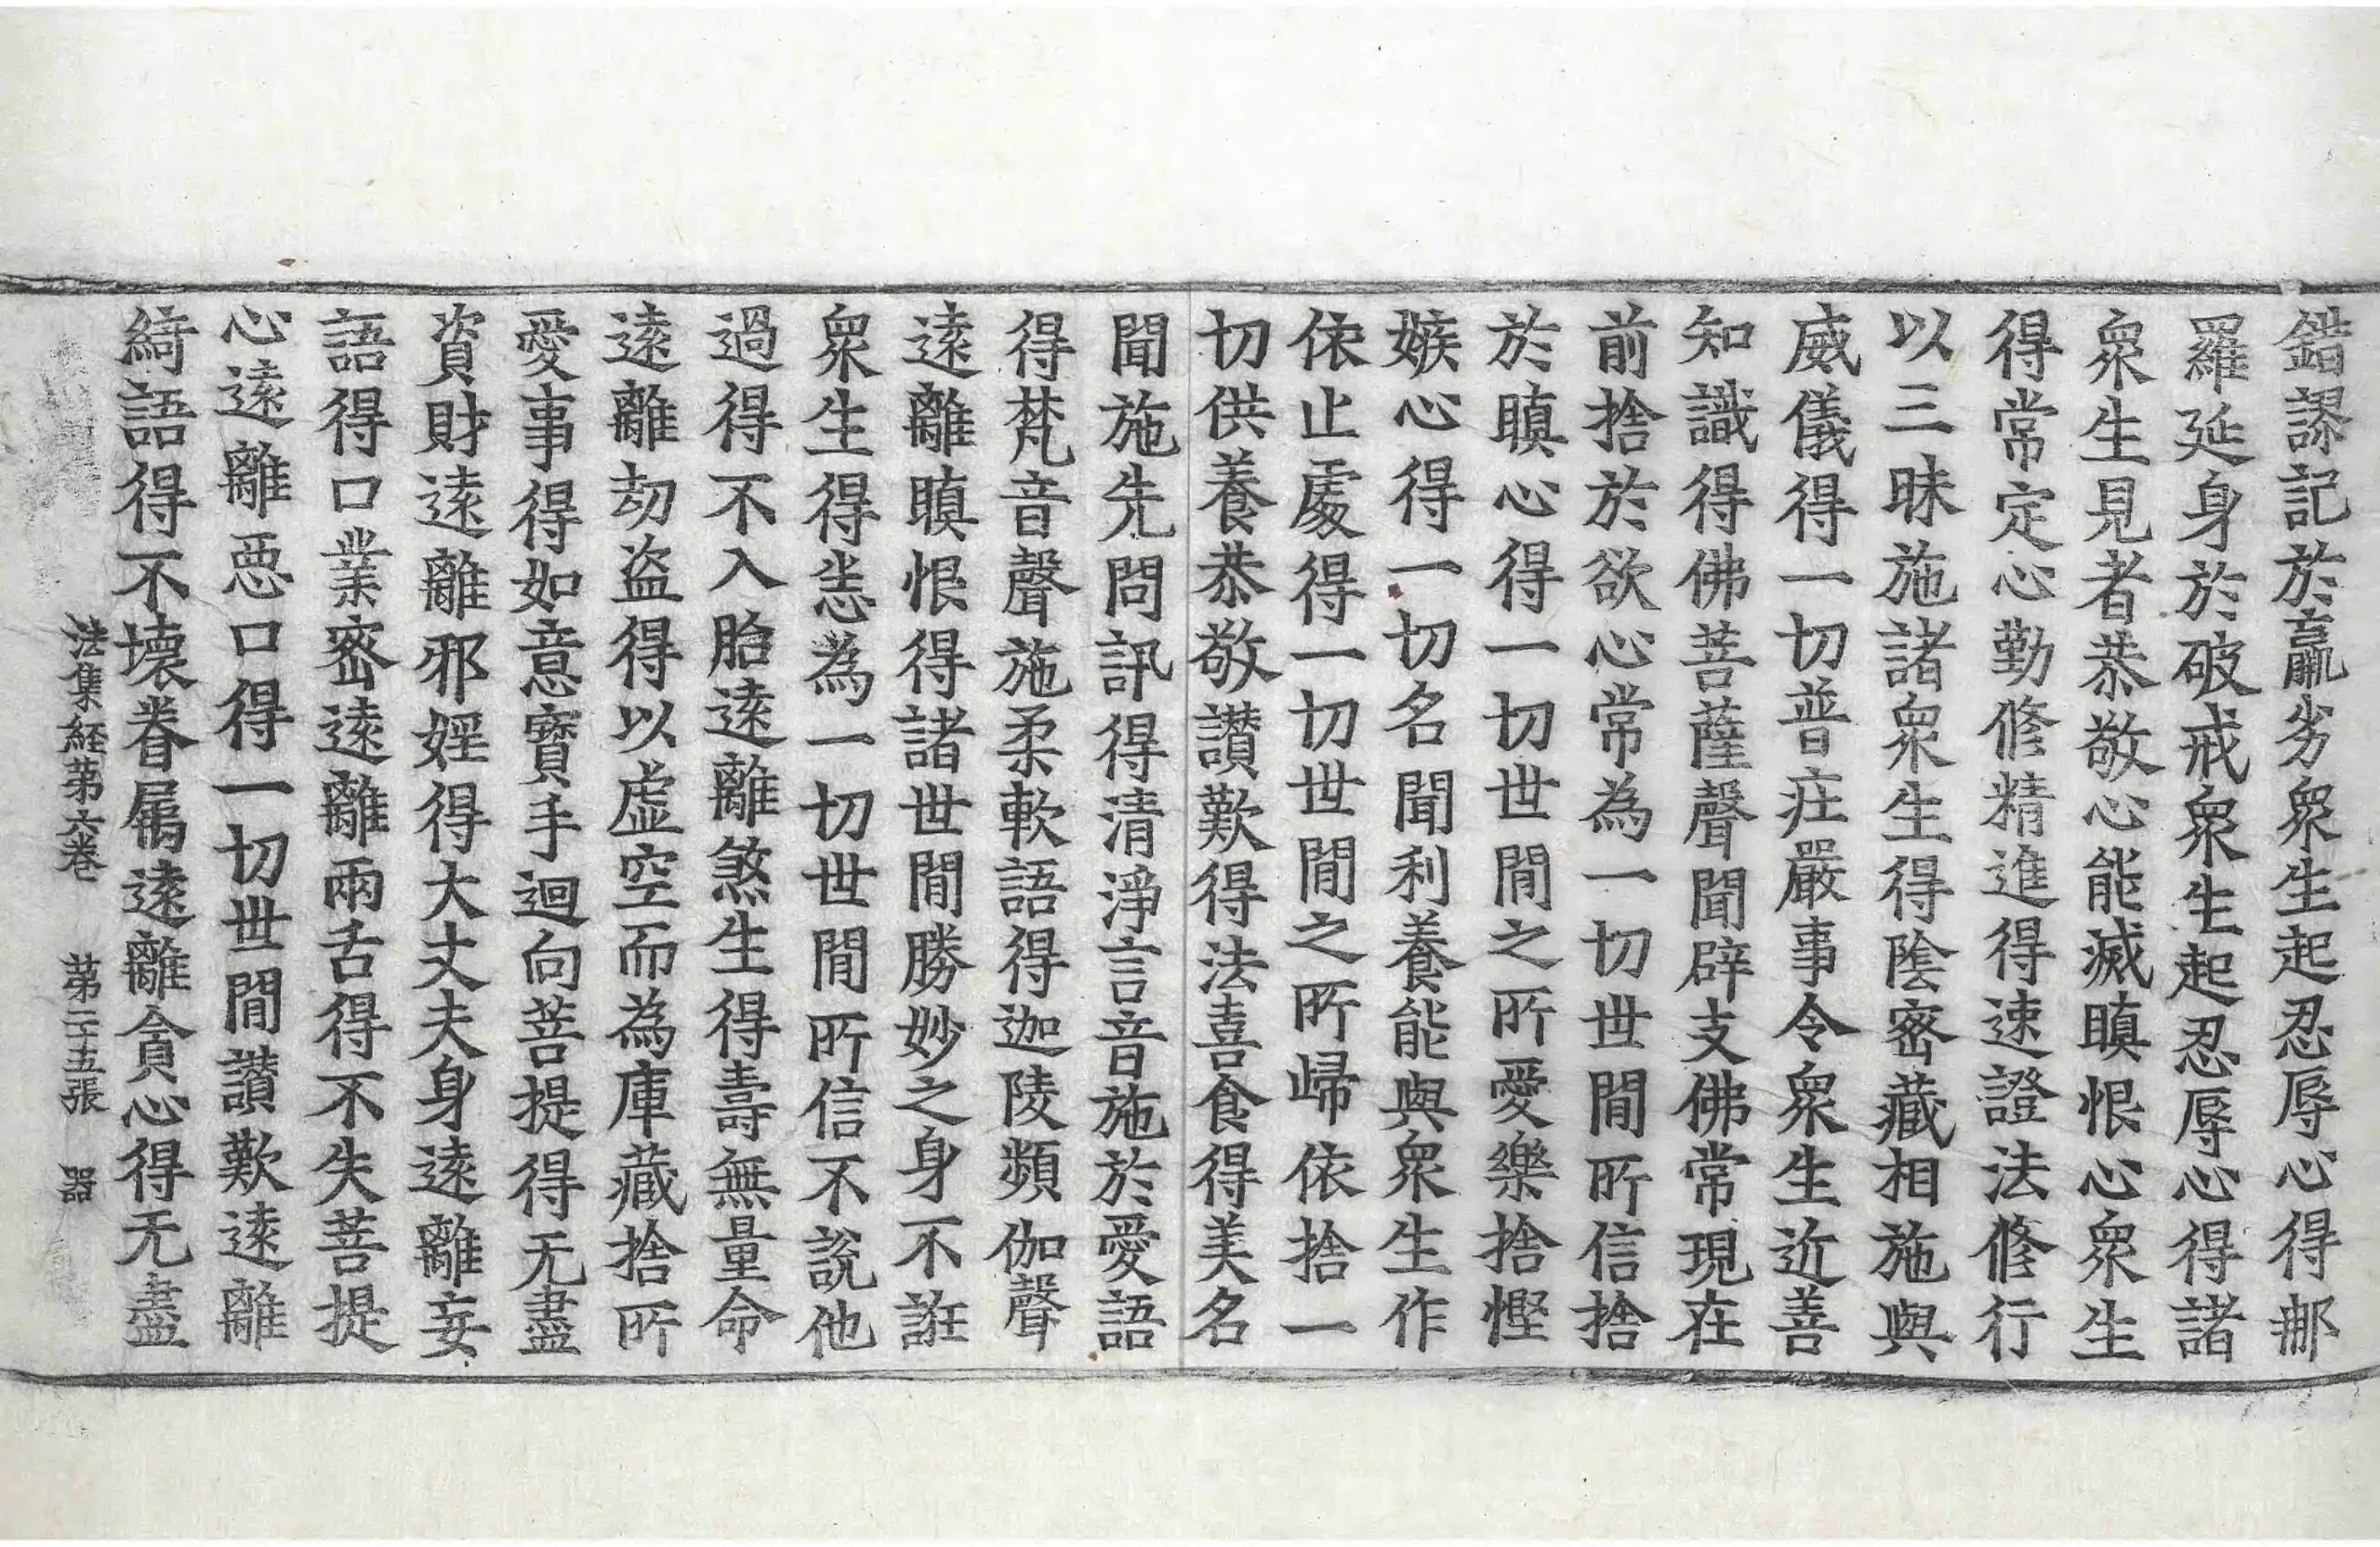 錯謬記於羸劣衆生起忍辱心得那
羅延身於破戒衆生起忍辱心得諸
衆生見者恭敬心能滅瞋恨心衆生
得常定心勤修精進得速證法修行
以三昧施諸衆生得陰密藏相施與
威儀得一切普莊嚴事令衆生近善
知識得佛菩薩聲聞辟支佛常現在
前捨於欲心常為一切世間所信捨
於瞋心得一切世間之所愛樂捨慳
嫉心得一切名聞利養能與衆生作
依止處得一切世間之所歸依捨一
切供養恭敬讃歎得法喜食得美名
聞施先問訊得清淨言音施於愛語
得梵音聲施柔軟語得迦陵頻伽聲
遠離瞋恨得諸世間勝妙之身不誑
衆生得恙為一切世間所信不說他
過得不入胎遠離煞生得壽無量命
遠離劫盜得以虛空而為庫藏捨所
愛事得如意寳手迴向菩提得无盡
資財遠離邪婬得大丈夫身遠離妄
語得口業密遠離兩舌得不失菩提
心遠離惡口得一切世間讃歎遠離
綺語得不壞眷屬遠離貪心得无盡
法集経第六卷 第二十五張 器